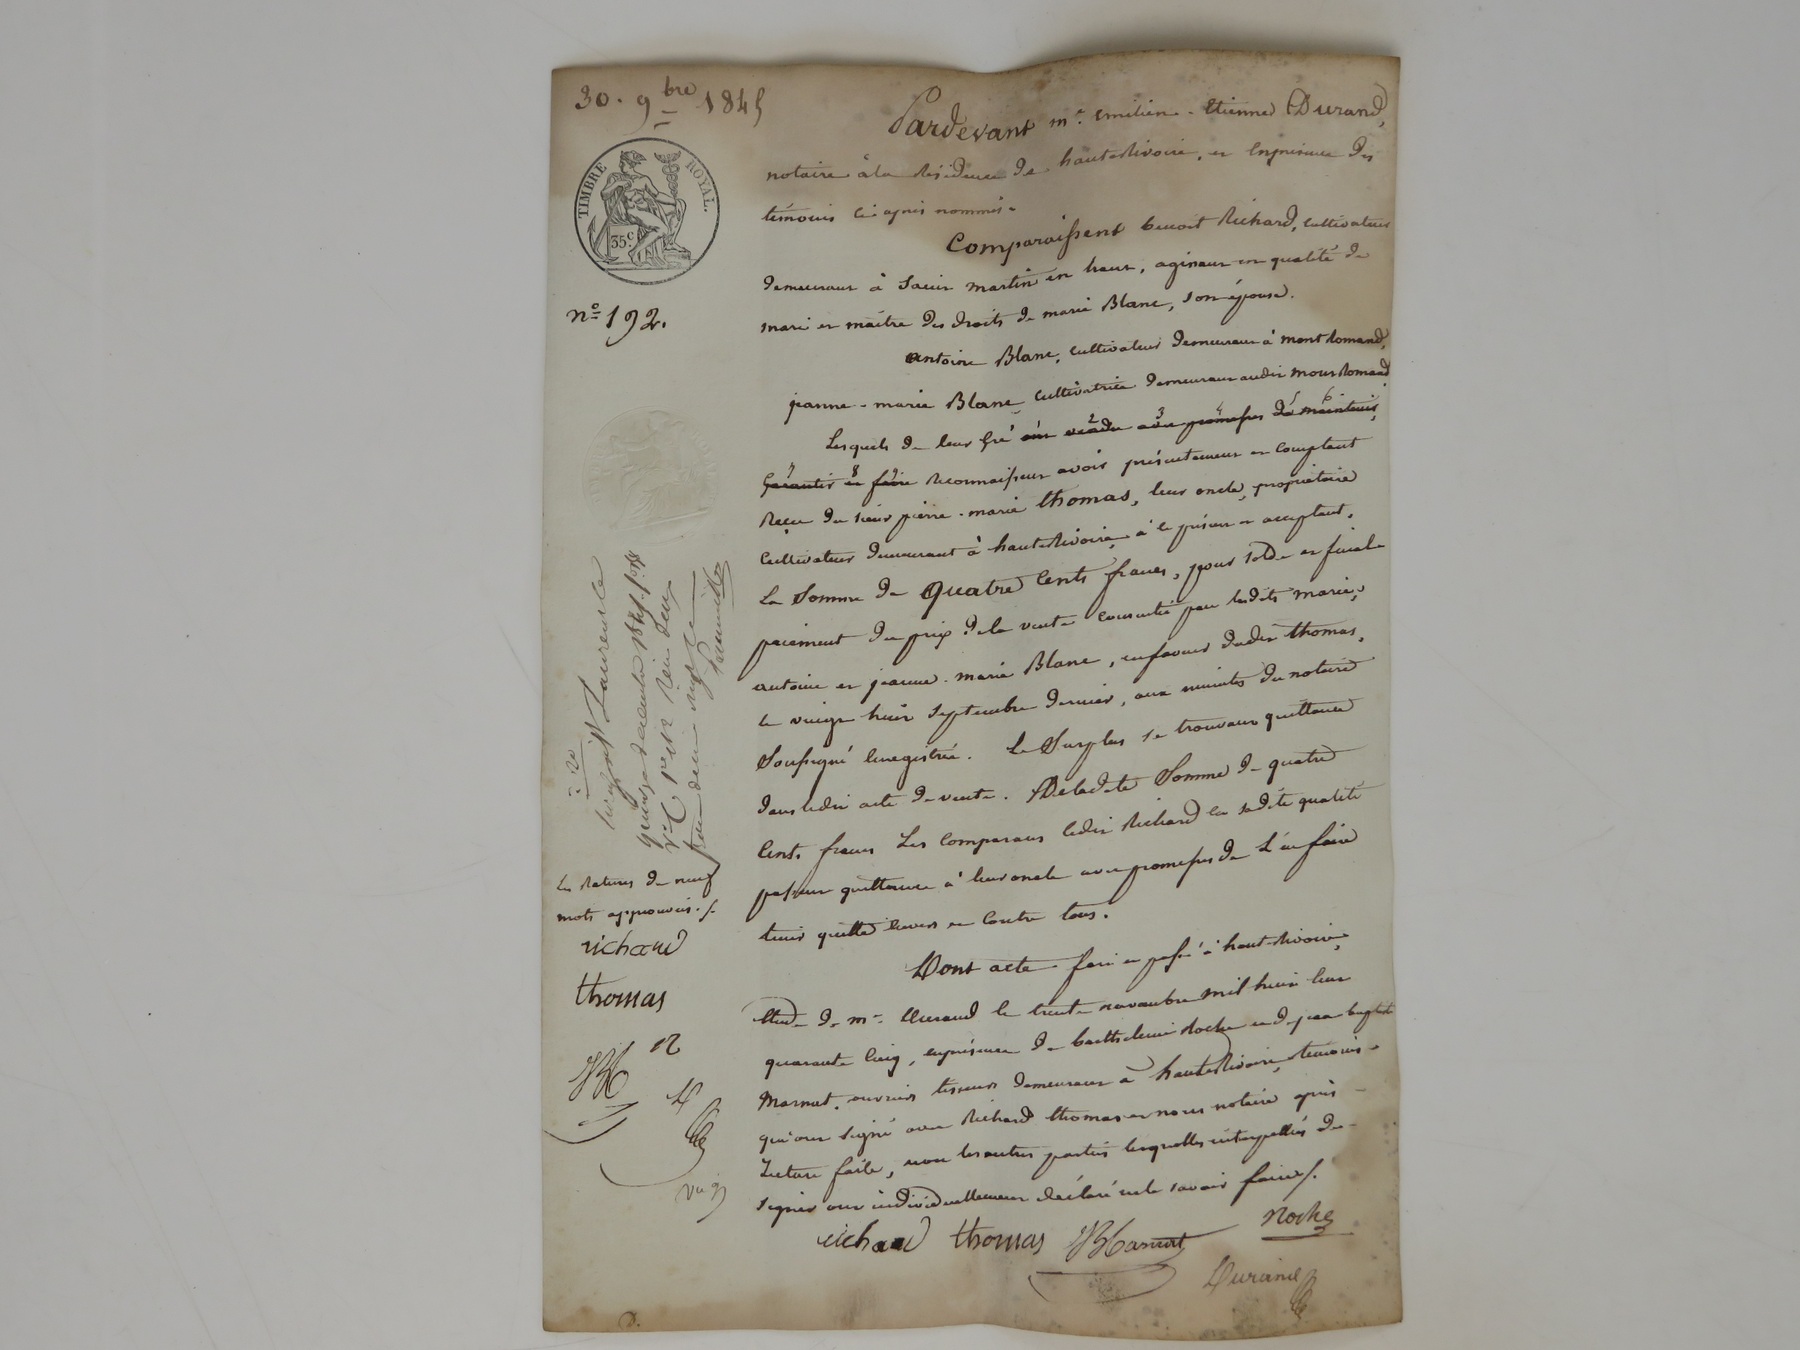 30. 9bre 1845
TIMBRE ROYAL.
35c
n° 192.
Pardevant me. Emilien - Etienne Durand,
notaire à la Résidence de hauterivoire, et en présence des
témoins ci après nommés.
Comparaissent benoit Richard, cultivateur
demeurant à Saint martin en haut, agissant en qualité de
mari et maitre des droits de marie Blanc, son épouse.
antoine Blanc, cultivateur demeurant à montromand,
jeanne-marie Blanc, cultivatrice demeurant audit montromand
Lesquels de leur gré ont vendu avec promesses de maintenir,
garantir et faire reconnaissent avoir présentement et comptant
reçu du sieur pierre-marie thomas, leur oncle, propriétaire
cultivateur demeurant à hauterivoire, à ce présent et acceptant,
La Somme de quatre Cents francs, pour solde et final
paiement du prix de la vente consentie par lesdits marie,
antoine et jeanne-marie Blanc, en faveur dudit thomas,
le vingt huit septembre dernier, aux minutes du notaire
soussigné enregistrée. Le Surplus se trouvant quittancé
dans ledit acte de vente. De ladite Somme de quatre
Cents francs Les Comparans ledit Richard en sadite qualité
passent quittance à leur oncle avec promesses de l'en faire
tenir quitte envers et contre tous.
Dont acte fait et passé à hauterivoire,
étude de me. Durand le trente novembre mil huit cent
quarante cinq, en présence de barthelemi Roche et de jean baptiste
Marnat, ouvriers tisseurs demeurant à hauterivoire, témoins
qui ont signé avec Richard thomas et nous notaire après
Lecture faite, non les autres parties lesquelles interpellées de
signer ont individuellement déclaré ne le savoir faire/.
richard thomas Roche
Durand
St Laurent de
quinze décembre 1845. f°
reçu deux
francs
Les ratures de neuf
mots approuvées./.
richard
thomas